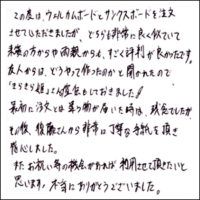 この度は、ウェルカムボードとサンクスボードを注文
させていただきましたが、どちらも非常に良く似ていて
来賓の方からや両親からも、すごく評判が良かったです。
友人からは、どうやって作ったのかと聞かれたので
最初に注文とは違う物が届いた時は、残念でしたが
その後、後藤さんから非常に丁寧な手紙を頂き
感心しました。
また お祝い等の機会があれば利用させて頂きたいと
思います。本当にありがとうございました。